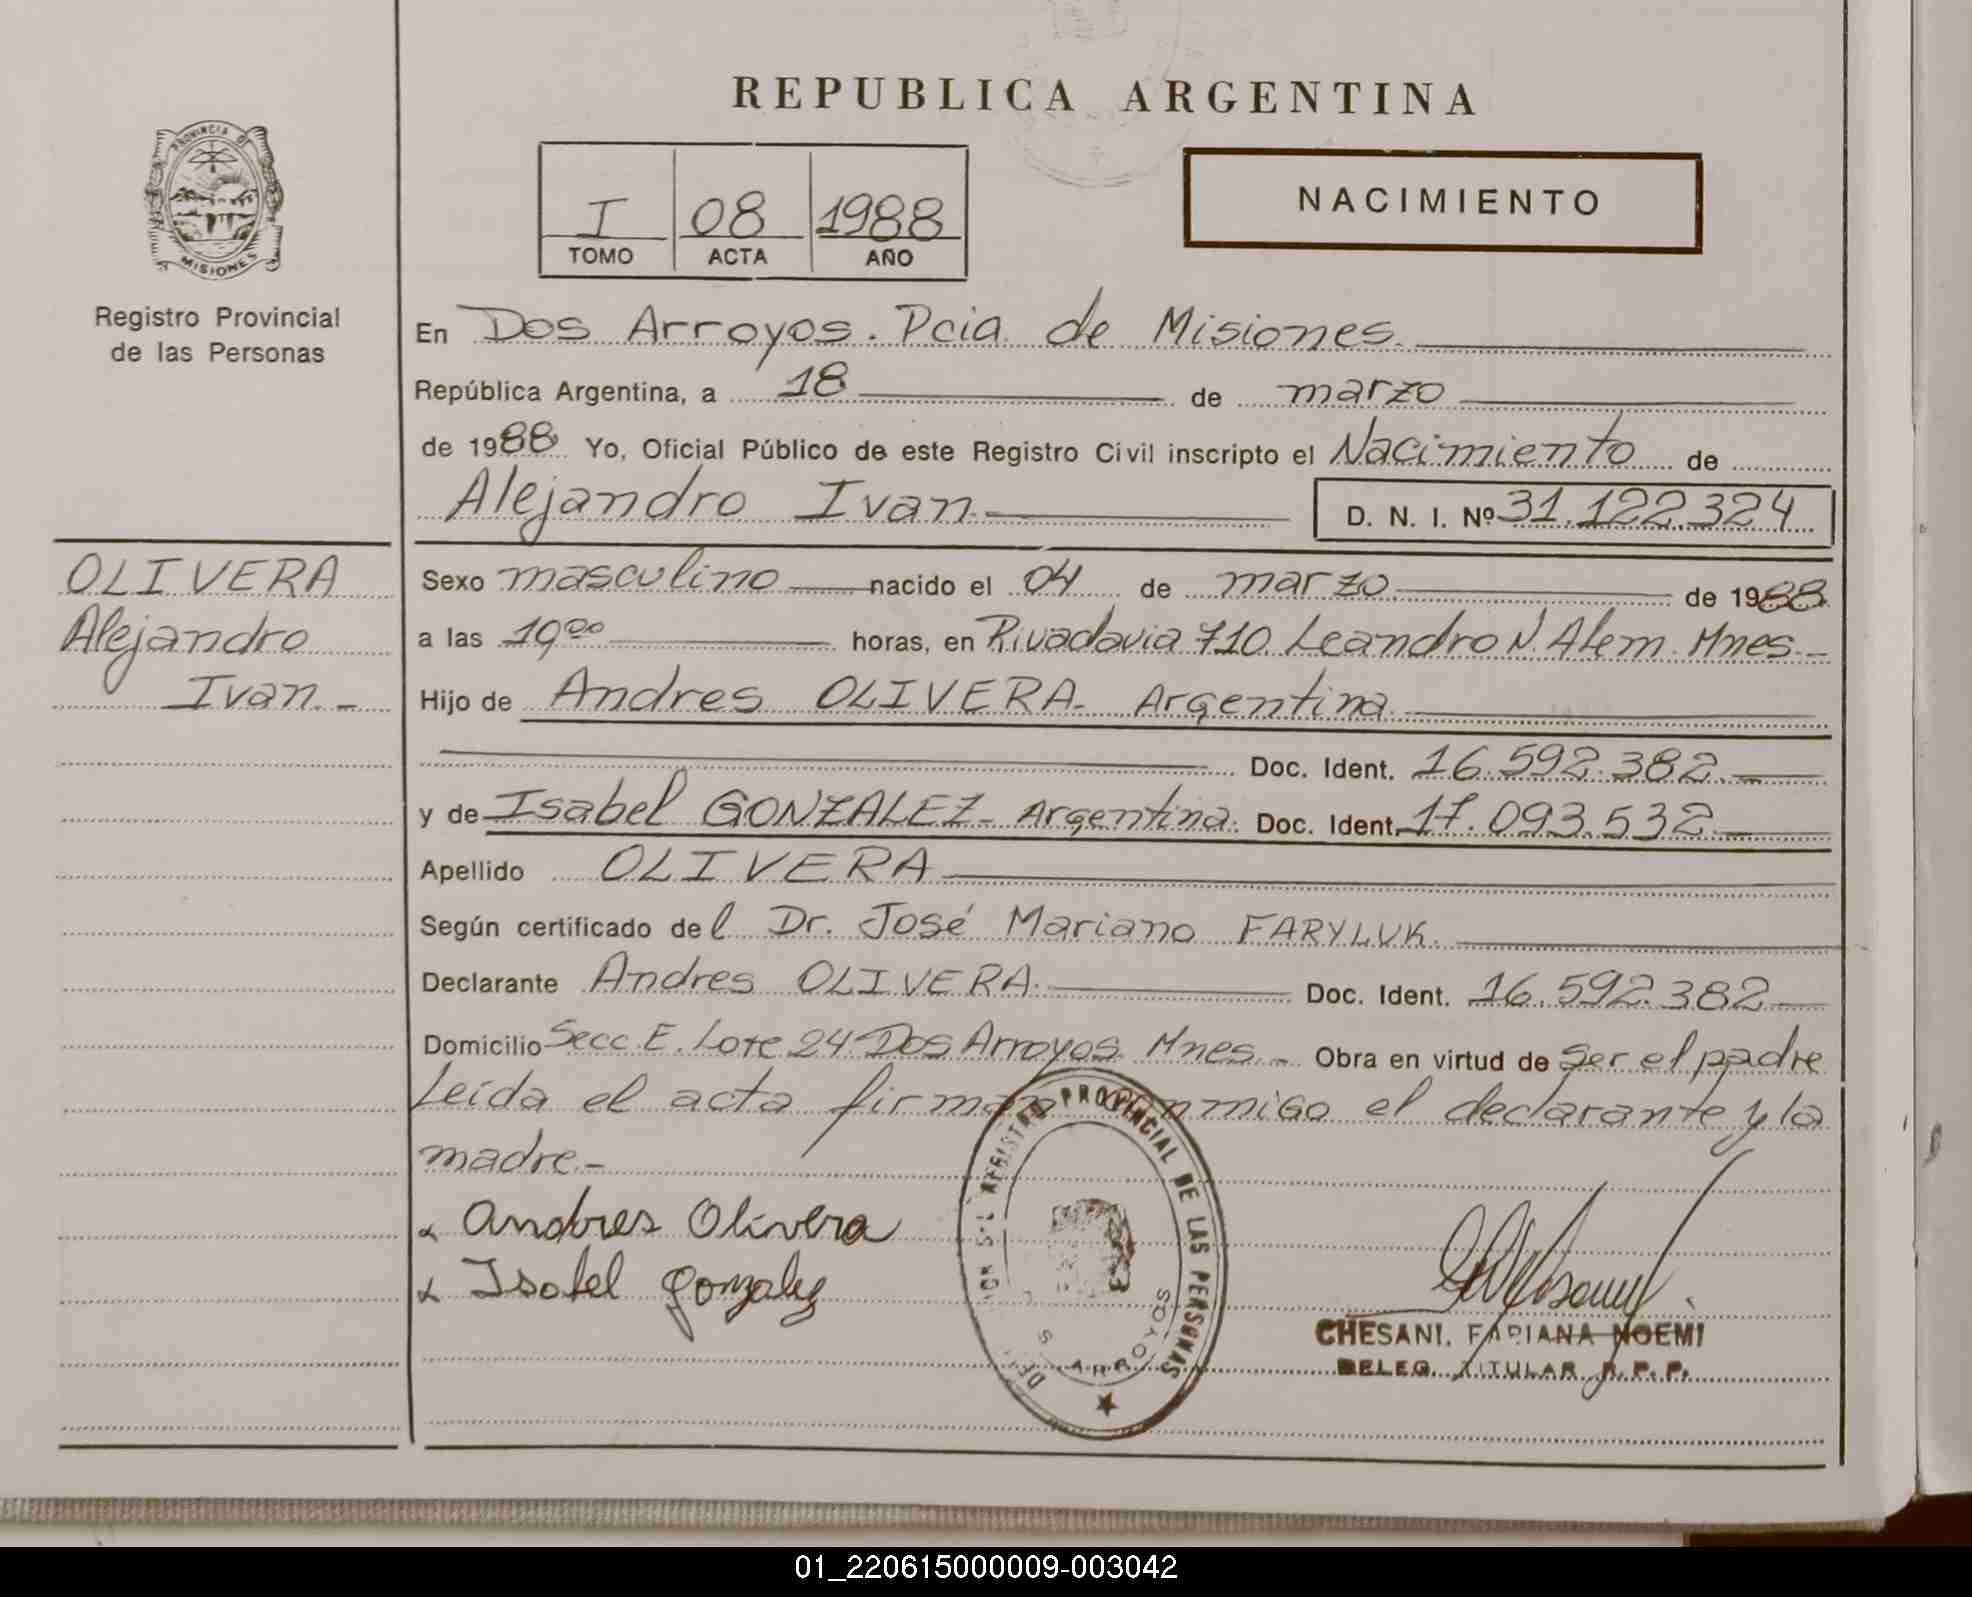 REPUBLICA ARGENTINA
PROVINCIA DE
MISIONES
Registro Provincial
de las Personas
I 08 1988
TOMO ACTA AÑO
NACIMIENTO
En Dos Arroyos. Pcia de Misiones.
República Argentina, a 18 de marzo
de 1988 Yo, Oficial Público de este Registro Civil inscripto el Nacimiento de
Alejandro Ivan D. N. I. Nº 31.122.324
OLIVERA
Alejandro
Ivan.-
Sexo masculino nacido el 04 de marzo de 1988
a las 19⁰⁰ horas, en Rivadavia 710 Leandro N. Alem. Mnes.-
Hijo de Andres OLIVERA- Argentina
Doc. Ident. 16.592.382.-
y de Isabel GONZALEZ- Argentina. Doc. Ident. 17.093.532-
Apellido OLIVERA
Según certificado del Dr. José Mariano FARYLUK.
Declarante Andres OLIVERA. Doc. Ident. 16.592.382-
Domicilio Secc. E. Lote 24 Dos Arroyos. Mnes.- Obra en virtud de ser el padre
Leída el acta firman conmigo el declarante y la
madre.-
Andres Olivera
Isabel Gonzalez
REGISTRO PROVINCIAL DE LAS PERSONAS
ARROYOS
CHESANI, FABIANA NOEMI
DELEG. TITULAR R. P. P.
01_220615000009-003042